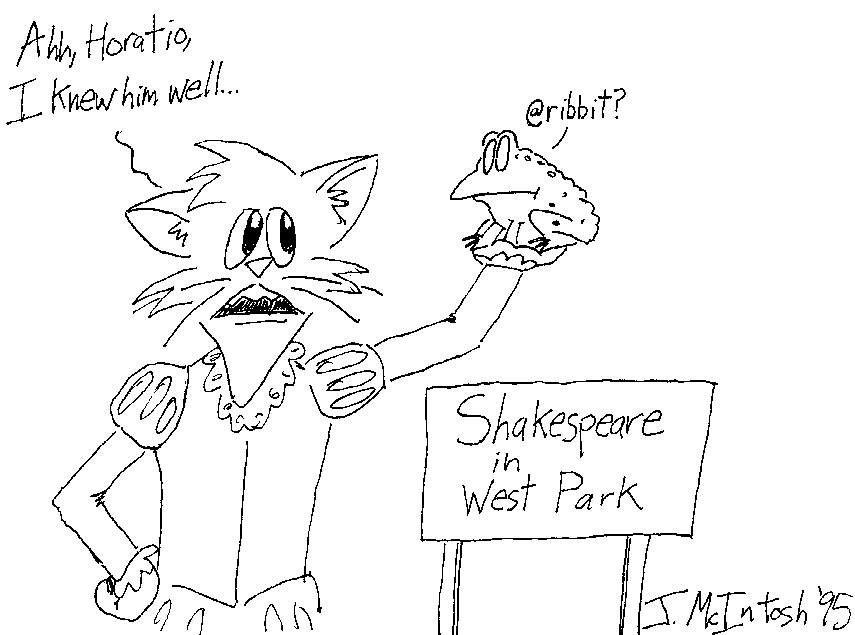 Ahh, Horatio,
I knew him well...
@ribbit?
Shakespeare
in
West Park
J. McIntosh '95